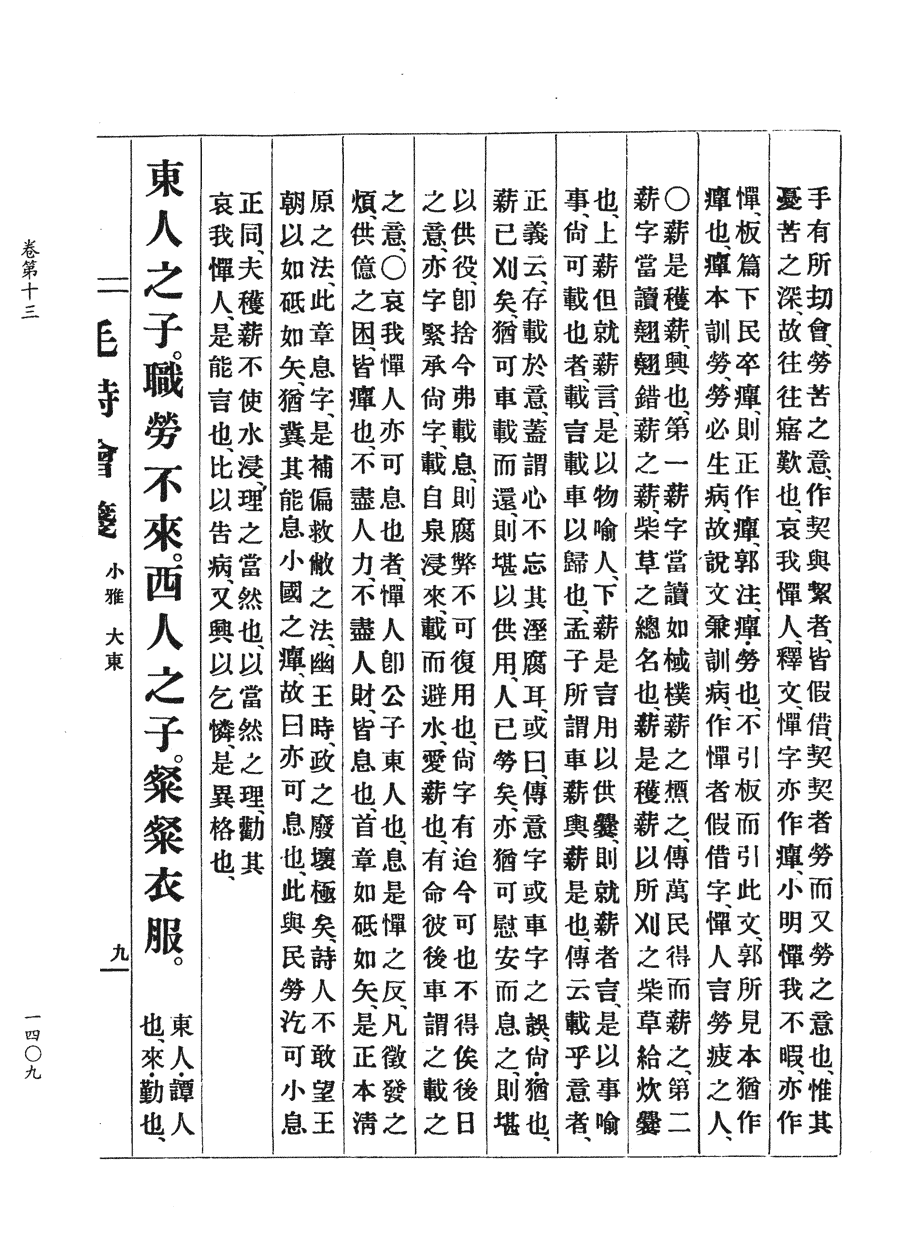 手有所㓞會、勞苦之意、作契與絜者、皆假借、契契者勞而又勞之意也、惟其
憂苦之深、故往往寤歎也、哀我憚人、釋文、憚字亦作癉、小明憚我不暇、亦作
憚、板篇下民卒癉、則正作癉、郭注、癉・勞也、不引板而引此文、郭所見本猶作
癉也、癉本訓勞、勞必生病、故說文兼訓病、作憚者假借字、憚人言勞疲之人、
〇薪是穫薪、興也、第一薪字當讀如棫樸薪之槱之、傳萬民得而薪之、第二
薪字當讀翹翹錯薪之薪、柴草之總名也、薪是穫薪以所刈之柴草給炊爨
也、上薪但就薪言、是以物喻人、下薪是言用以供爨、則就薪者言、是以事喻
事、尙可載也者、載言載車以歸也、孟子所謂車薪輿薪是也、傳云載乎意者、
正義云、存載於意、蓋謂心不忘其溼腐耳、或曰、傳意字或車字之誤、尙・猶也、
薪已刈矣、猶可車載而還、則堪以供用、人已勞矣、亦猶可慰安而息之、則堪
以供役、卽捨今弗載息、則腐弊不可復用也、尙字有迨今可也不得俟後日
之意、亦字緊承尙字、載自泉浸來、載而避水、愛薪也、有命彼後車謂之載之
之意、〇哀我憚人亦可息也者、憚人卽公子東人也、息是憚之反、凡徵發之
煩、供億之困、皆癉也、不盡人力、不盡人財、皆息也、首章如砥如矢、是正本淸
原之法、此章息字、是補偏救敝之法、幽王時、政之廢壞極矣、詩人不敢望王
朝以如砥如矢、猶冀其能息小國之癉、故曰亦可息也、此與民勞汔可小息
正同、夫穫薪不使水浸、理之當然也、以當然之理勸其
哀我憚人、是能言也、比以告病、又興以乞憐、是異格也、
東人之子。職勞不來。西人之子。粲粲衣服。
東人・譚人
也、來・勤也、
毛詩會箋 小雅 大東 九
卷第十三
一四〇九